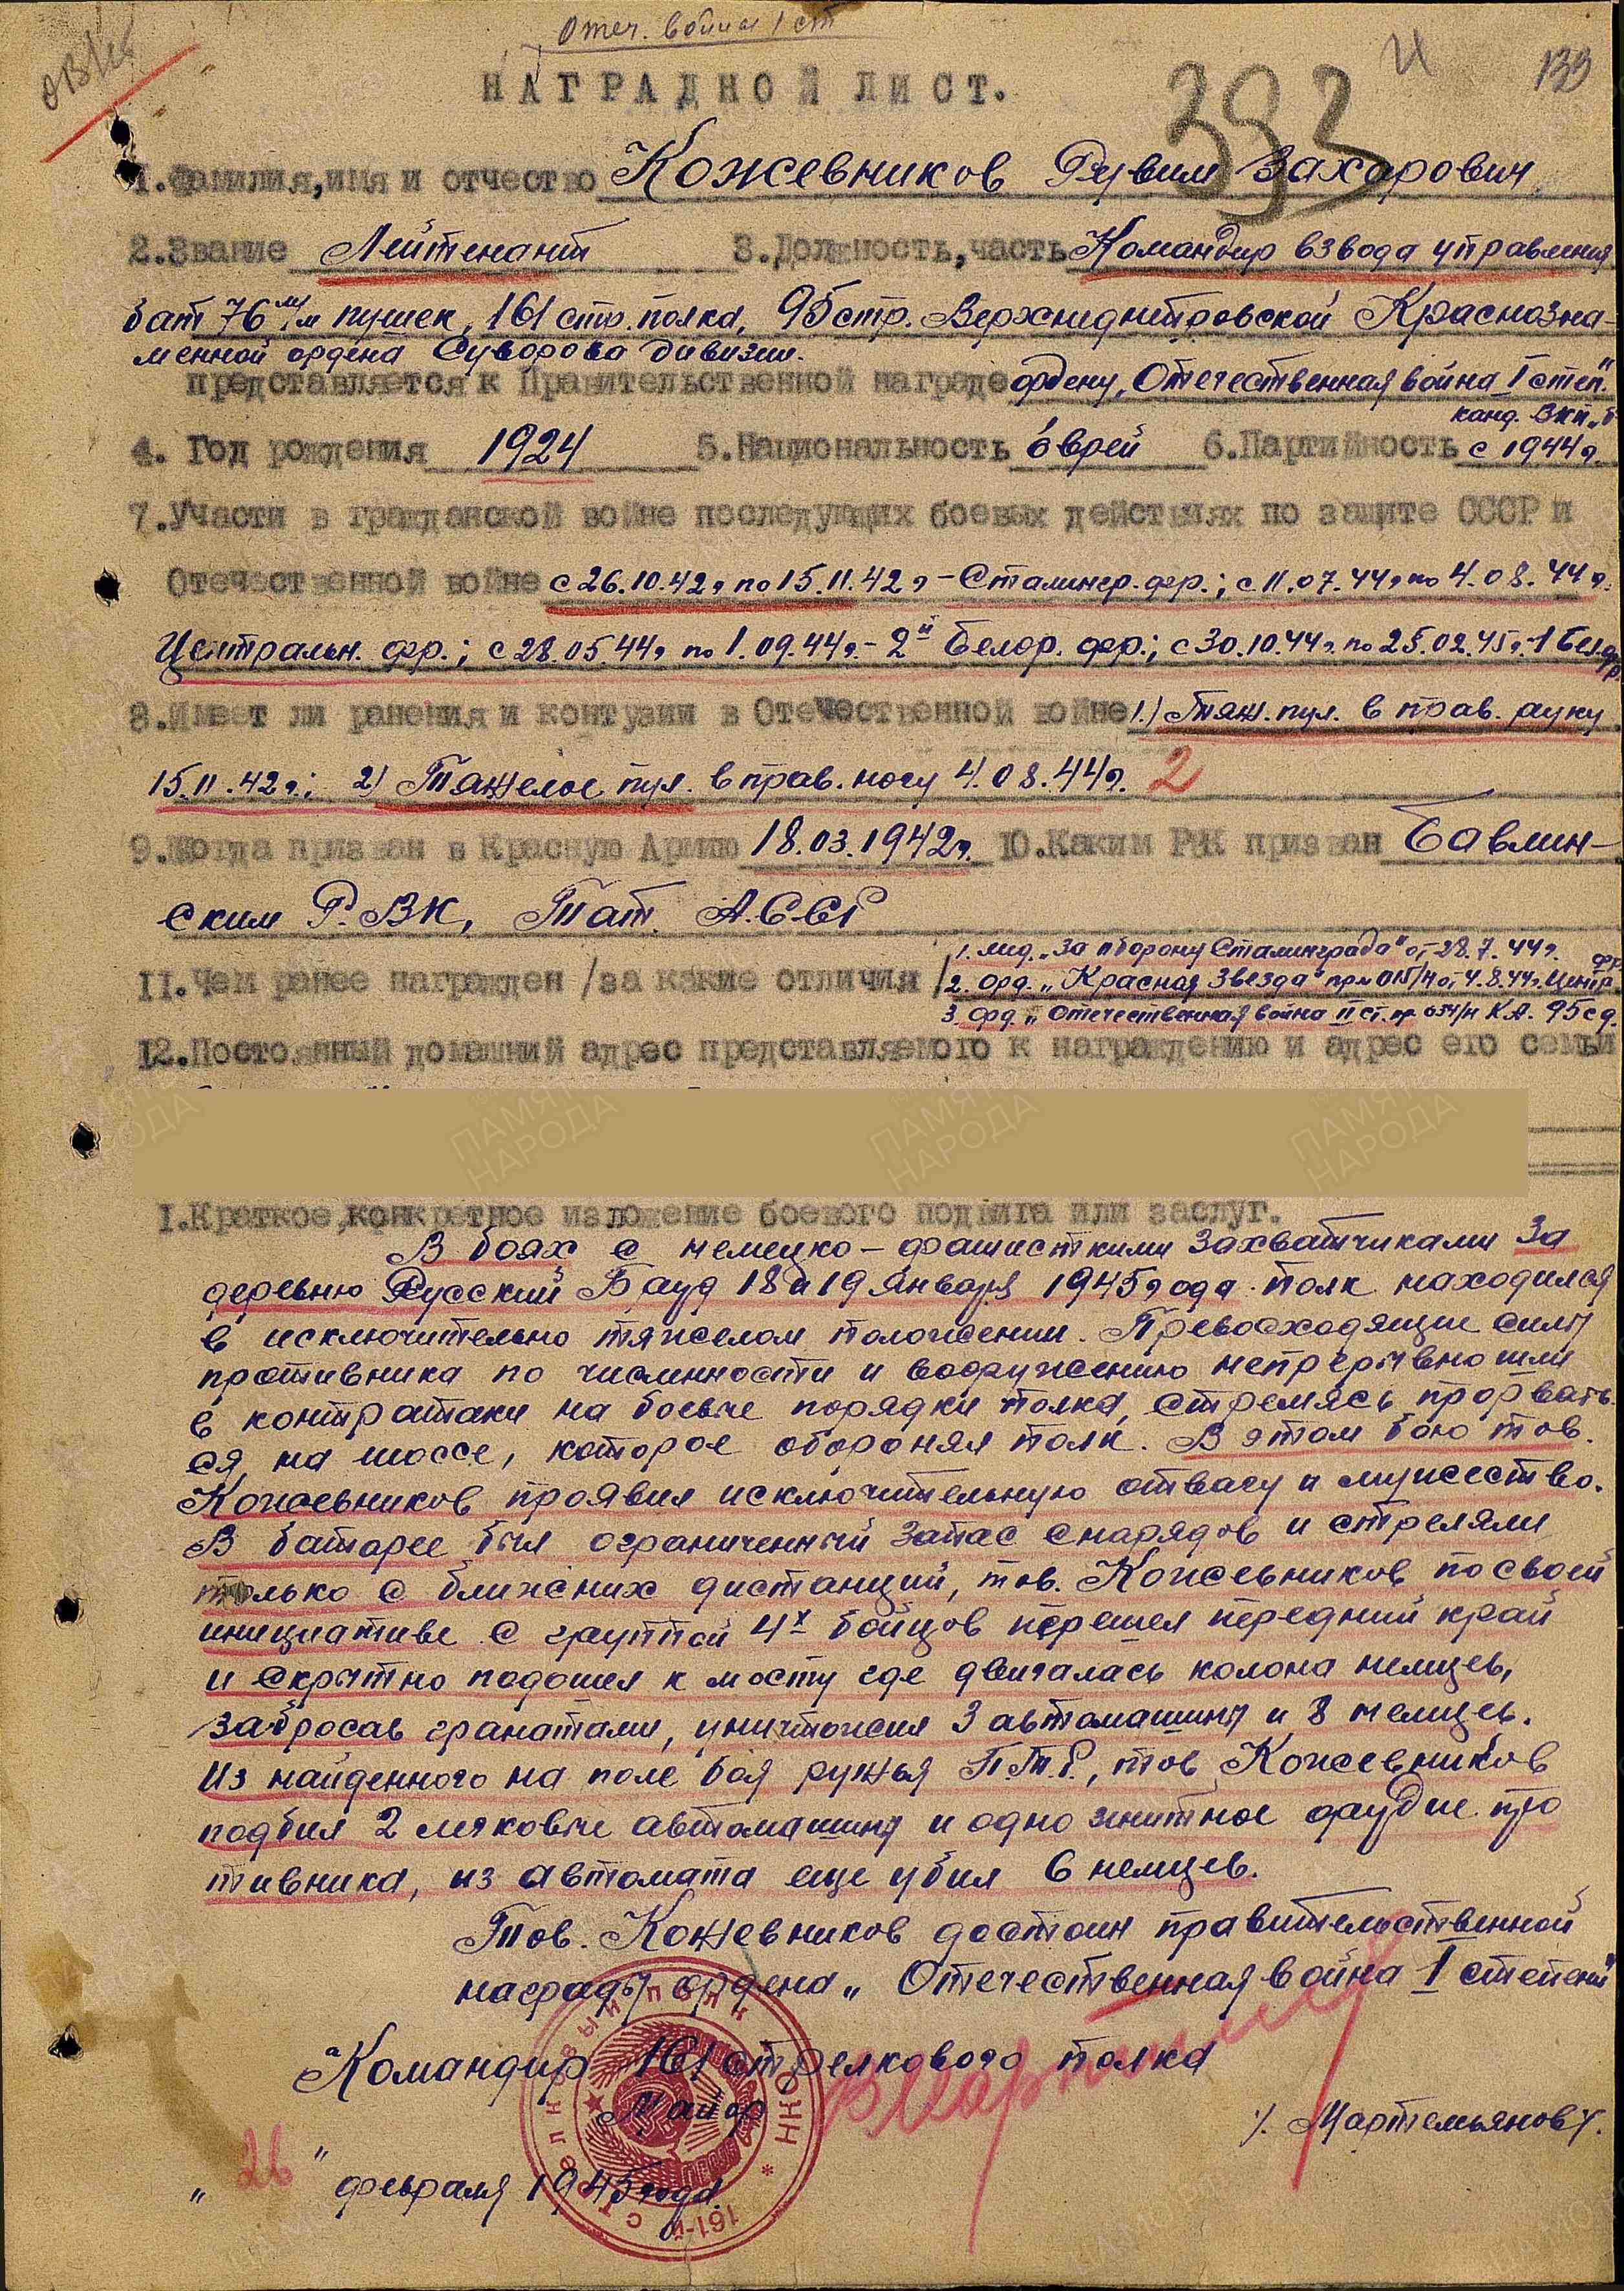 Отеч. война 1 ст
ОВ 1 ст
НАГРАДНОЙ ЛИСТ.
393
133
1.Фамилия, имя и отчество Кожевников Рувим Захарович
2.Звание Лейтенант 3.Должность, часть Командир взвода управления
бат 76 м/м пушек, 161 стр. полка, 95 стр. Верхнеднепровской Краснозна-
менной ордена Суворова дивизии.
представляется к Правительственной награде ордену „Отечественная война I степ."
канд. ВКП„б
4. Год рождения 1924 5.Национальность еврей 6.Партийность с 1944г.
7.Участи в гражданской войне последующих боевых действиях по защите СССР и
Отечественной войне с 26.10.42г по 15.11.42г – Сталингр. фр.; с 11.07.44г по 4.08.44г.
Центральн. фр.; с 28.05.44г по 1.09.44г. – 2й Белор. фр.; с 30.10.44г. по 25.02.45г. – 1 Бел. фр.
8.Имеет ли ранения и контузии в Отечественной войне 1.) Тяж. пул. в прав. руку
15.11.42г.; 2) Тяжелое пул. в прав. ногу 4.08.44г. 2
9.Когда призван в Красную Армию 18.03.1942г. 10.Каким РВК призван Бавлин-
ским Р.ВК, Тат. А.ССР
1. мед. „За оборону Сталинграда" от 28.7.44г.
11.Чем ранее награжден /за какие отличия/ 2. орд. „Красная Звезда" пр № 015/н от 4.8.44г. Центр. фр
3. орд. „Отечественная война II ст. пр 054/н К.А. 95 с д.
12.Постоянный домашний адрес представляемого к награждению и адрес его семьи
I.Краткое, конкретное изложение боевого подвига или заслуг.
В боях с немецко-фашисткими захватчиками за
деревню Русский Брауд 18 и 19 января 1945 года полк находился
в исключительно тяжелом положении. Превосходящие силы
противника по численности и вооружению непрерывно шли
в контратаки на боевые порядки полка, стремясь прорвать-
ся на шоссе, которое оборонял полк. В этом бою тов.
Кожевников проявил исключительную отвагу и мужество.
В батарее был ограниченный запас снарядов и стреляли
только с ближних дистанций, тов. Кожевников по своей
инициативе с группой 4х бойцов перешел передний край
и скрытно подошел к мосту где двигалась колона немцев,
забросав гранатами, уничтожил 3 автомашины и 8 немцев.
Из найденного на поле боя ружья П.Т.Р., тов Кожевников
подбил 2 легковые автомашины и одно зенитное орудие про
тивника, из автомата еще убил 6 немцев.
Тов. Кожевников достоин правительственной
награды ордена „Отечественная война I степени"
Командир 161 стрелкового полка
Майор
/. Мартемьянов/.
„26" февраля 1945 года.
161-й СТРЕЛКОВЫЙ ПОЛК * НКО
ПАМЯТЬ НАРОДА
ПАМЯТЬ НАРОДА
ПАМЯТЬ НАРОДА